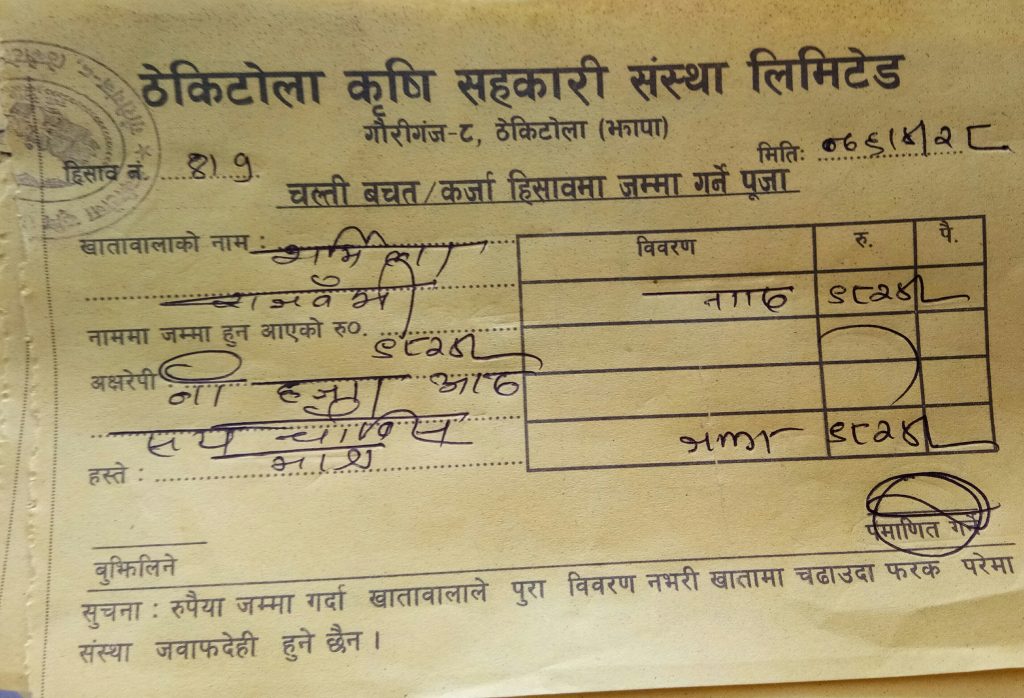 ठेकिटोला कृषि सहकारी संस्था लिमिटेड
गौरीगंज-८, ठेकिटोला (झापा)
हिसाव नं. 819 मितिः ०७६/४/२८
चल्ती बचत/कर्जा हिसावमा जम्मा गर्ने पूर्जा
खातावालाको नाम : शर्मिला
राजवँशी
नाममा जम्मा हुन आएको रु०. ९८२४/-
अक्षरेपी नौ हजार आठ
सय चौविस
मात्र
हस्ते :
विवरण रु. पै.
नगद ९८२४/-
जम्मा ९८२४/-
प्रमाणित गर्ने
बुझिलिने
सुचना : रुपैया जम्मा गर्दा खातावालाले पुरा विवरण नभरी खातामा चढाउदा फरक परेमा
संस्था जवाफदेही हुने छैन ।